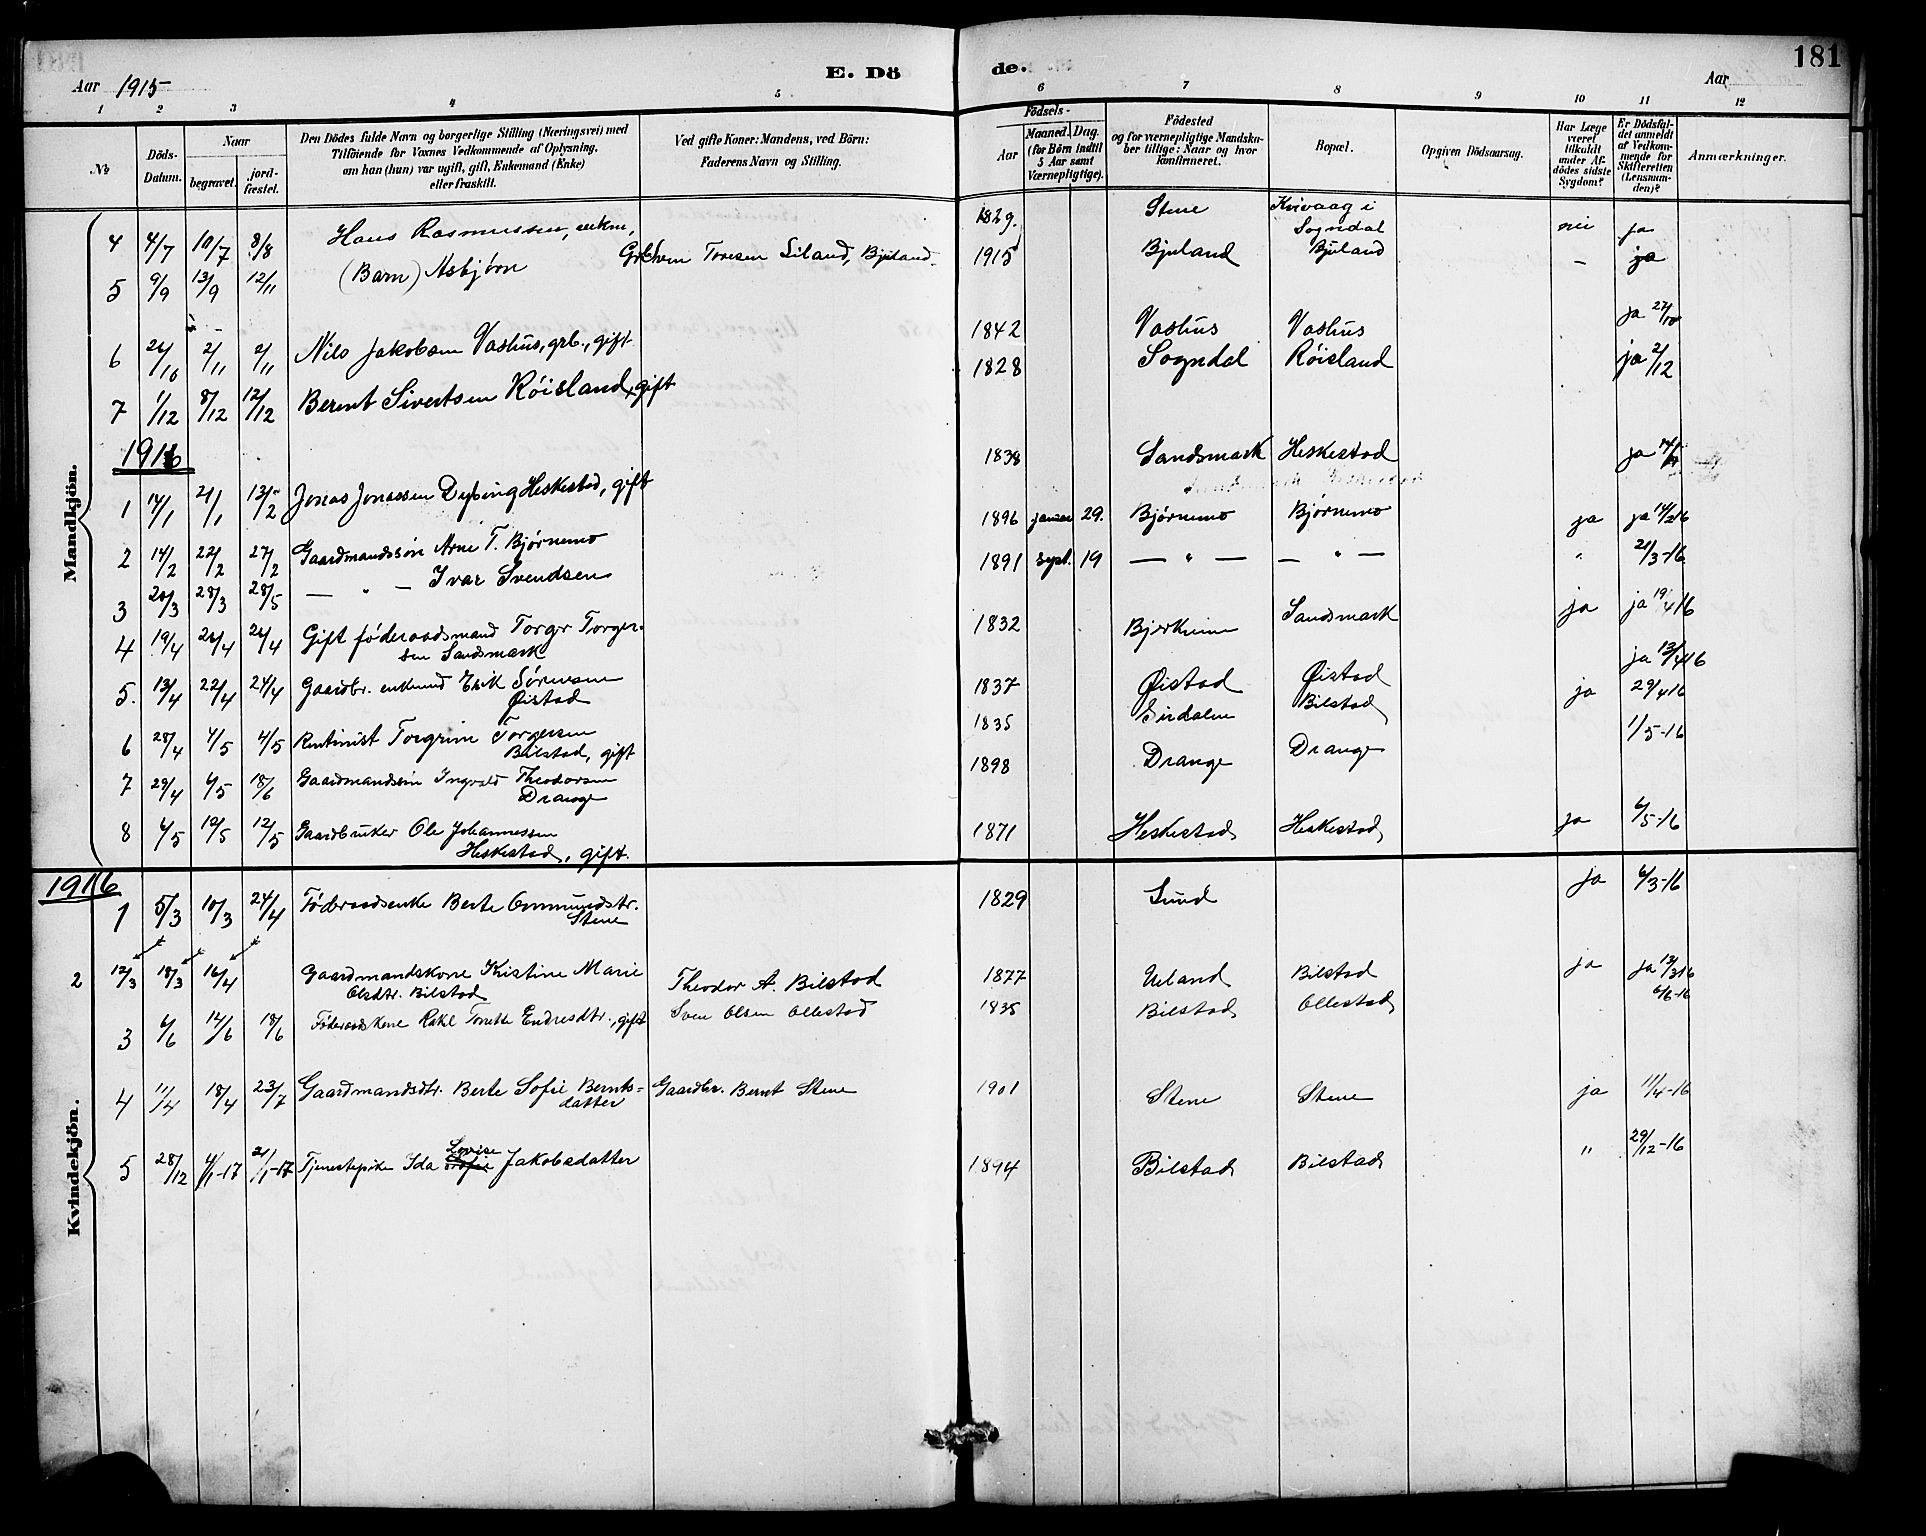 181
Aar 1915
E. Dö
de.
Aar
1 2 3 4 5 6 7 8 9 10 11 12
№
Döds-Datum.
Naar
begravet.
jord-fæstet.
Den Dödes fulde Navn og borgerlige Stilling (Næringsvei) med
Tilföiende for Voxnes Vedkommende af Oplysning,
om han (hun) var ugift, gift, Enkemand (Enke)
eller fraskilt.
Ved gifte Koner: Mandens, ved Börn:
Faderens Navn og Stilling.
Födsels-
Aar
Maaned. Dag.
(for Börn indtil
5 Aar samt
Værnepligtige).
Födested
og for værnepligtige Mandska-
ber tillige: Naar og hvor
konfirmeret.
Bopæl.
Opgiven Dödsaarsag.
Har Læge
været
tilkaldt
under Af-
dödes sidste
Sygdom?
Er Dödsfal-
det anmeldt
af Vedkom-
mende for
Skifteretten
(Lensman-
den)?
Anmærkninger.
Mandkjön.
4 4/7 10/7 8/8 Hans Rasmussen, enkm, 1829. Stene Kvivaag i Sogndal nei ja
5 9/9 13/9 12/11 (Barn) Asbjørn Sven Tovesen Liland, Bjuland. 1915 Bjuland Bjuland - ja
6 26/10 2/11 2/11 Nils Jakobsen Vashus, grb., gift 1842 Vashus Vashus ja 27/10
7 1/12 8/12 12/12 Berent Sivertsen Röisland, gift 1828 Sogndal Röisland ja 2/12
1916
1 14/1 21/1 13/2 Jonas Jonassen Dybing Heskestad, gift 1838 Sandsmark Heskestad ja
2 14/2 22/2 27/2 Gaardmandssön Arne T. Bjørnemo 1896 januar 29. Bjørnemo Bjørnemo ja ja 14/2 16
3 20/3 28/3 28/5 — " — Ivar Svendsen 1891 sept. 19 — " — — " — " 21/3-16
4 19/4 26/4 26/4 Gift föderaadsmand Torgr Torger-
sen Sandsmark 1832 Bjerkreim Sandsmark ja ja 19/4 16
5. 13/4 22/4 24/4 Gaardbr. enkmd Erik Sörensen
Øistad 1837 Øistad Øistad ja 13/4 16
6 28/4 4/5 4/5 Rentenist Torgrim Torgersen
Bilstad, gift 1835 Sirdalen Bilstad ja 29/4 16
7 29/4 6/5 18/6 Gaardmandssön Ingvald Theodorsen
Drange 1898 Drange Drange 1/5-16
8 6/5 12/5 12/5 Gaardbruker Ole Johannessen
Heskestad, gift. 1871 Heskestad Heskestad ja 6/5-16
1916
Kvindekjön.
1 5/3 10/3 24/4 Föderaadsenke Berte Ommundstr.
Stene 1829 Lund ja 6/3-16
2 12/3 18/3 16/4 Gaardmandskone Kristine Marie
Olsdtr. Bilstad Theodor A. Bilstad 1877 Ueland Bilstad ja ja 13/3 16
3 6/6 14/6 18/6 Föderaadskone Rakel Tomette Endresdtr., gift Sven Olsen Ollestad 1835 Bilstad Ollestad 6/6-16
4 11/4 18/4 23/7 Gaardmandsdtr. Berte Sofie Bernts-
datter Gaardbr. Bernt Stene 1901 Stene Stene ja 11/4-16
5 28/12 4/1-17 21/1-17 Tjenestepike Ida Lovise Jakobsdatter 1894 Bilstad Bilstad " 29/12-16